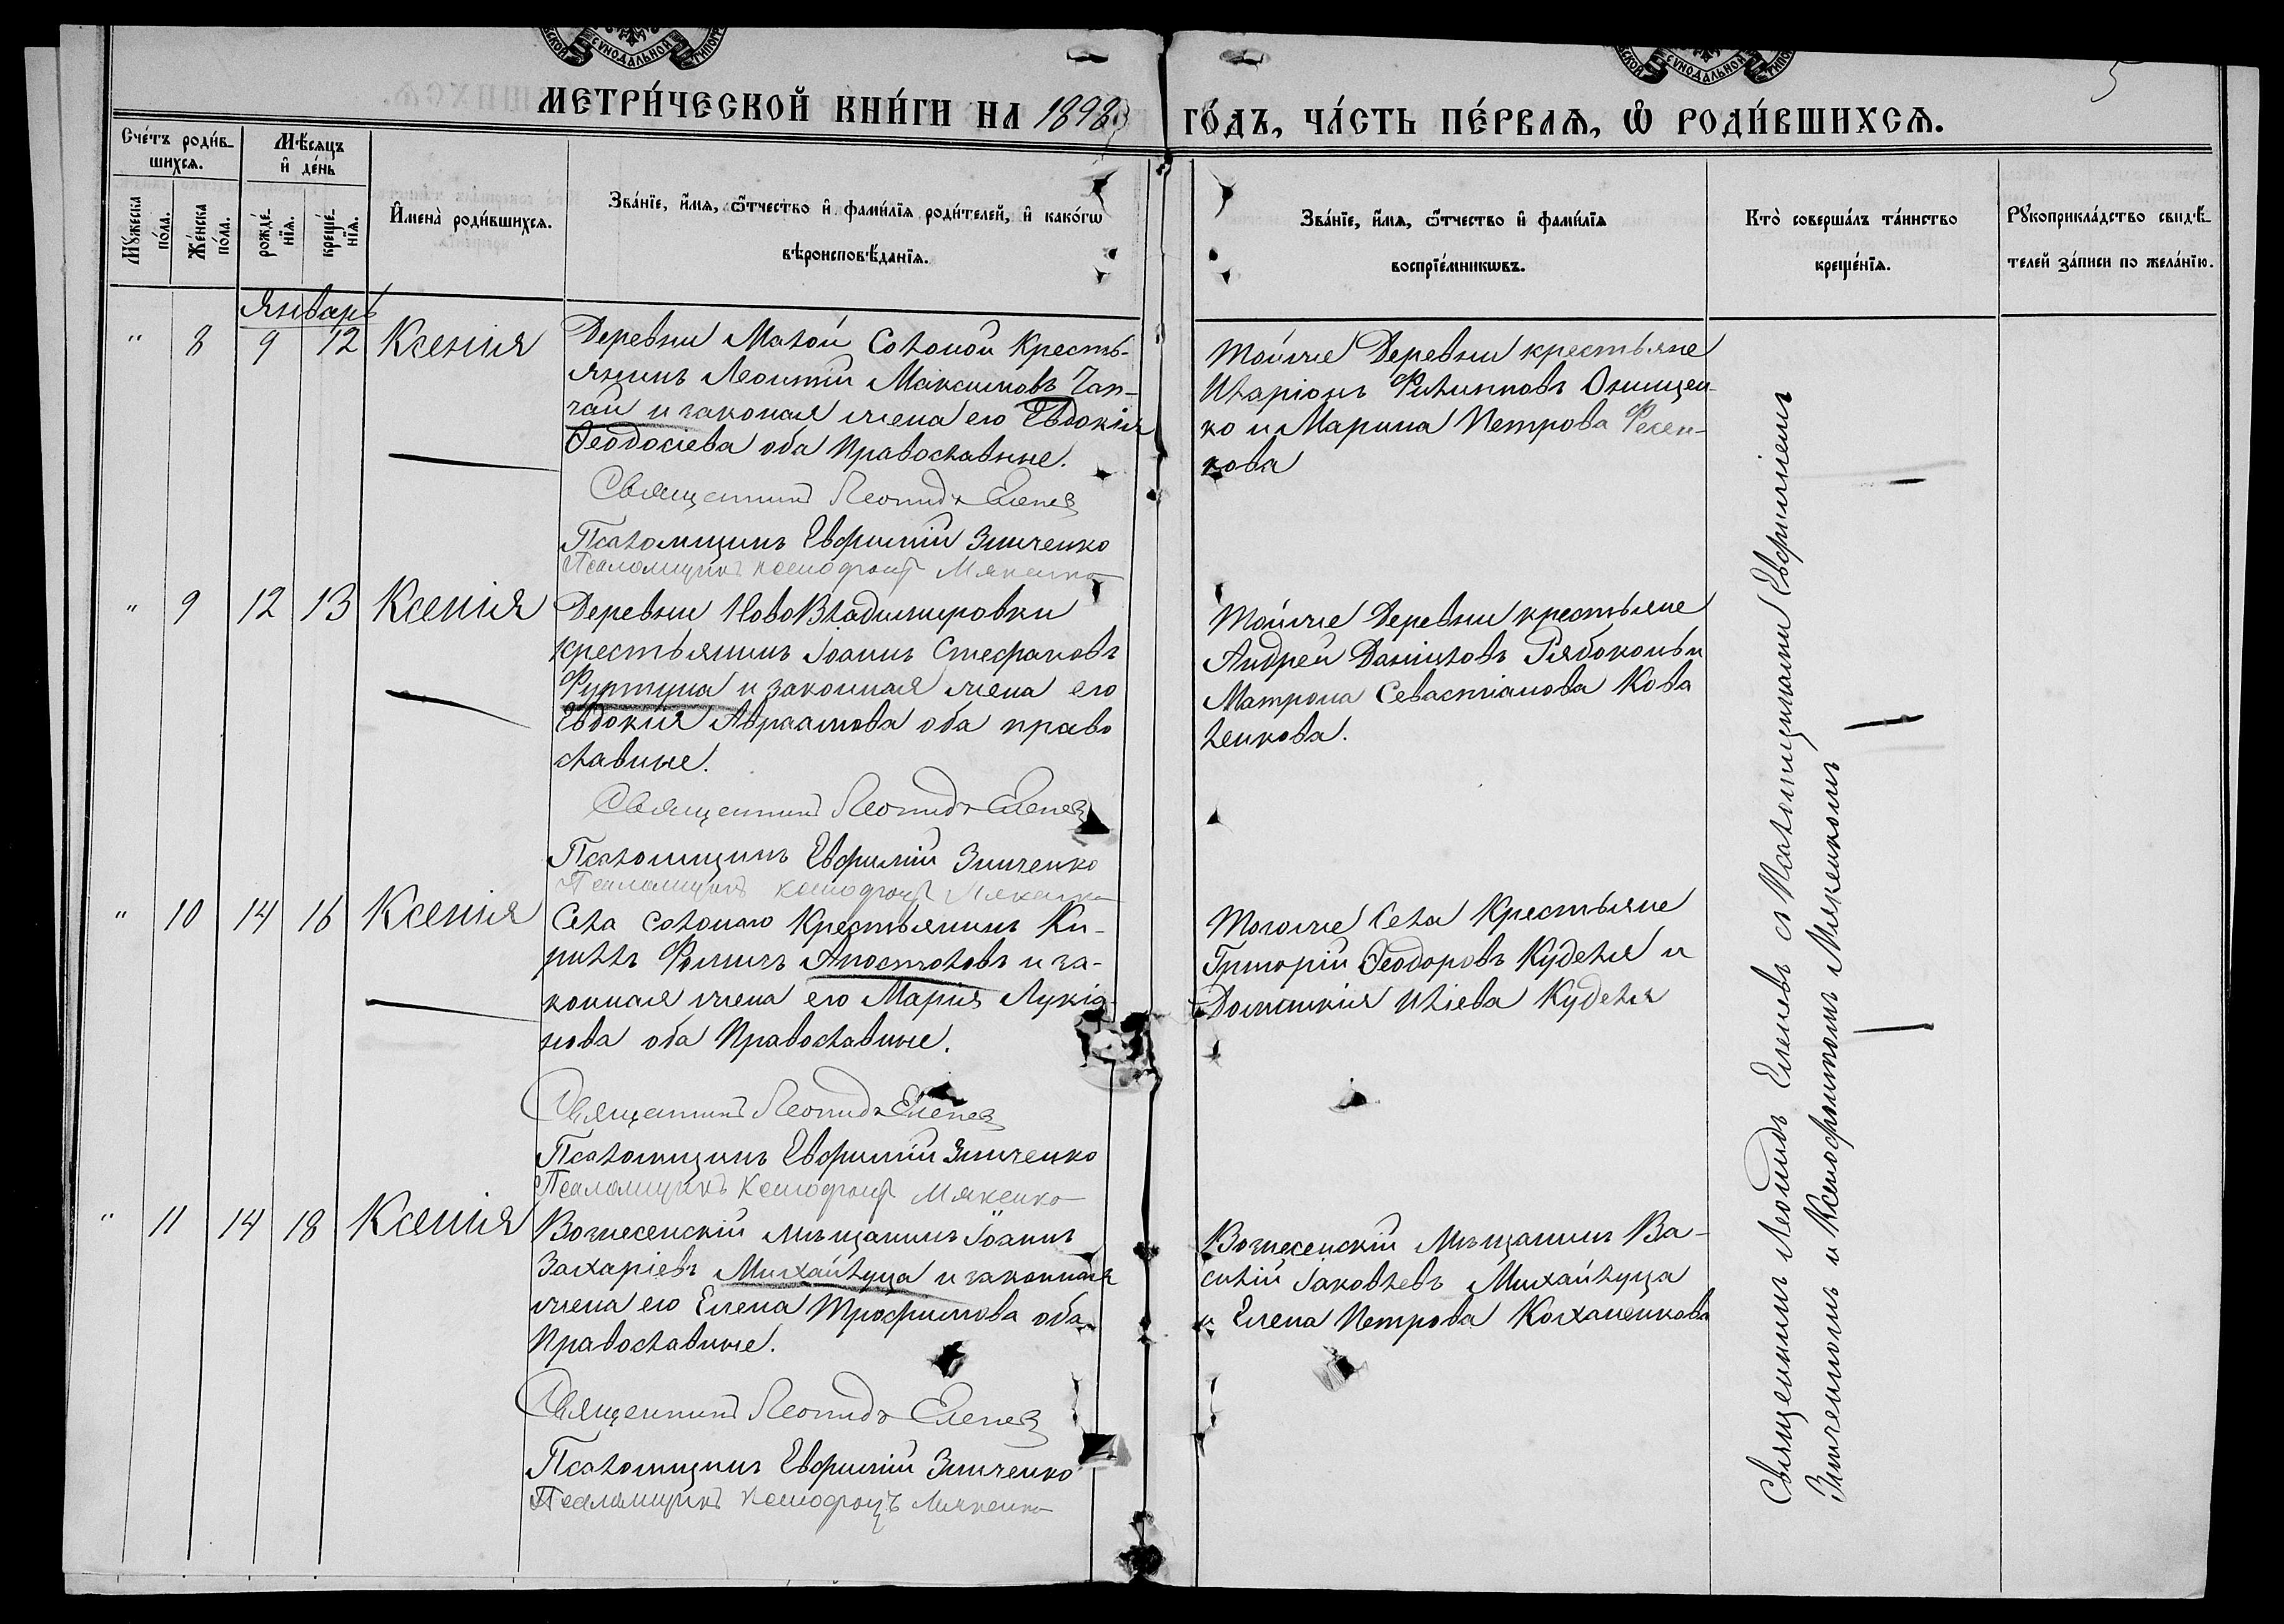 СУНОДАЛЬНОЙ
СУНОДАЛЬНОЙ
МЕТРИ́ЧЕСКОЙ КНИ́ГИ НА 1898 ГО́ДЪ, ЧА́СТЬ ПЕ́РВАѦ, Ѡ҆ РОДИ́ВШИХСѦ.
5
Сче́тъ роди́в-
шихсѧ.
Мѣ́сѧцъ
и҆ де́нь
Мꙋ́жеска
по́ла.
Же́нска
по́ла.
рожде́-
нїѧ.
креще́-
нїѧ.
И҆мена̀ роди́вшихсѧ.
Зва́нїе, и҆́мѧ, ѻ҆́тчество и҆ фами́лїѧ роди́телей, и҆ како́гѡ
вѣроисповѣ́данїѧ.
Зва́нїе, и҆́мѧ, ѻ҆́тчество и҆ фами́лїѧ
воспрїе́мникѡвъ.
Кто̀ соверша́лъ та́инство
креще́нїѧ.
Рꙋкоприкла́дство свидѣ́-
телей за́писи по жела́нїю.
Январь
" 8 9 12 Ксенія
Деревни Малой Солоной Кресть-
янинъ Леонтій Максимовъ Чап-
чай и законая жена его Евдокія
Ѳеодосіева оба Православные.
Священникъ Леонидъ Еленев
Псаломщикъ Евфимій Зинченко
Псаломщикъ Ксенофонтъ Мякенко
Тойже Деревни крестьяне
Иларіонъ Филиповъ Онищен-
ко и Марина Петрова Фесен-
кова
" 9 12 13 Ксенія
Деревни НовоВладимировки
крестьянинъ Іоаннъ Стефановъ
Фуртуна и законная жена его
Евдокія Авраамова оба право
славные.
Священникъ Леонидъ Еленев
Псаломщикъ Евфимій Зинченко
Псаломщикъ Ксенофонтъ Мякенко
Тойже Деревни крестьяне
Андрей Даніиловъ Рябоконь и
Матрона Севастіанова Кова
ленкова.
" 10 14 16 Ксенія
Села Солонаго Крестьянинъ Ки-
риллъ Фоминъ Апостоловъ и за-
конная жена его Марія Лукіа-
нова оба Православные.
Священникъ Леонидъ Еленев
Псаломщикъ Евфимій Зинченко
Псаломщикъ Ксенофонтъ Мякенко
Тогоже Села Крестьяне
Григорій Ѳеодоровъ Куделя и
Домникія Иліева Куделя
" 11 14 18 Ксенія
Вознесенскій мѣщанинъ Іоаннъ
Захаріевъ Михайлуца и законная
жена его Елена Трофимова оба
Православные.
Священникъ Леонидъ Еленев
Псаломщикъ Евфимій Зинченко
Псаломщикъ Ксенофонтъ Мякенко
Вознесенскій Мѣщанинъ Ва-
силій Іаковлевъ Михайлуца
и Елена Петрова Колханенкова
Священникъ Леонидъ Еленевъ съ Псаломщиками Евфиміемъ
Зинченкомъ и Ксенофонтомъ Мякенкомъ